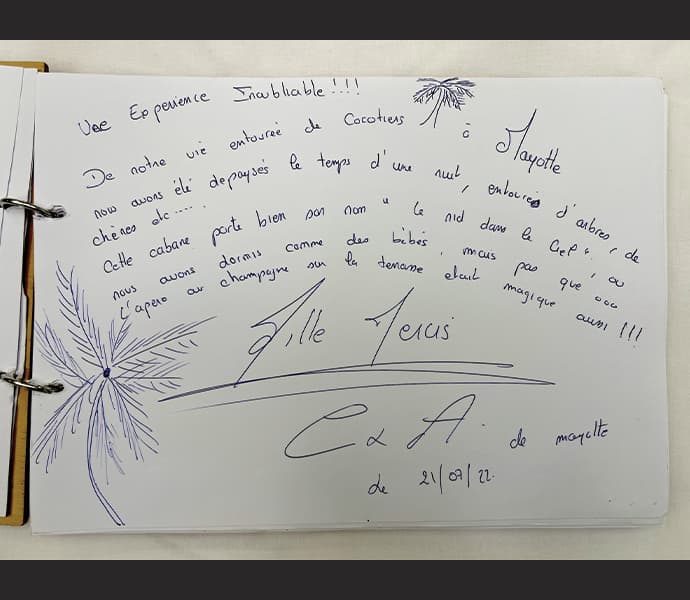 Une Experience Inoubliable !!!
De notre vie entourée de Cocotiers à Mayotte
nous avons été depaysés le temps d'une nuit, entourés d'arbres, de
chènes etc.....
Cette cabane porte bien son nom " le nid dans le Ciel ", où
nous avons dormis comme des bébés, mais pas que ooo
L'apero au champagne sur la terrasse etait magique aussi !!!
Mille Mercis
C & A. de mayotte
de 21/07/22.